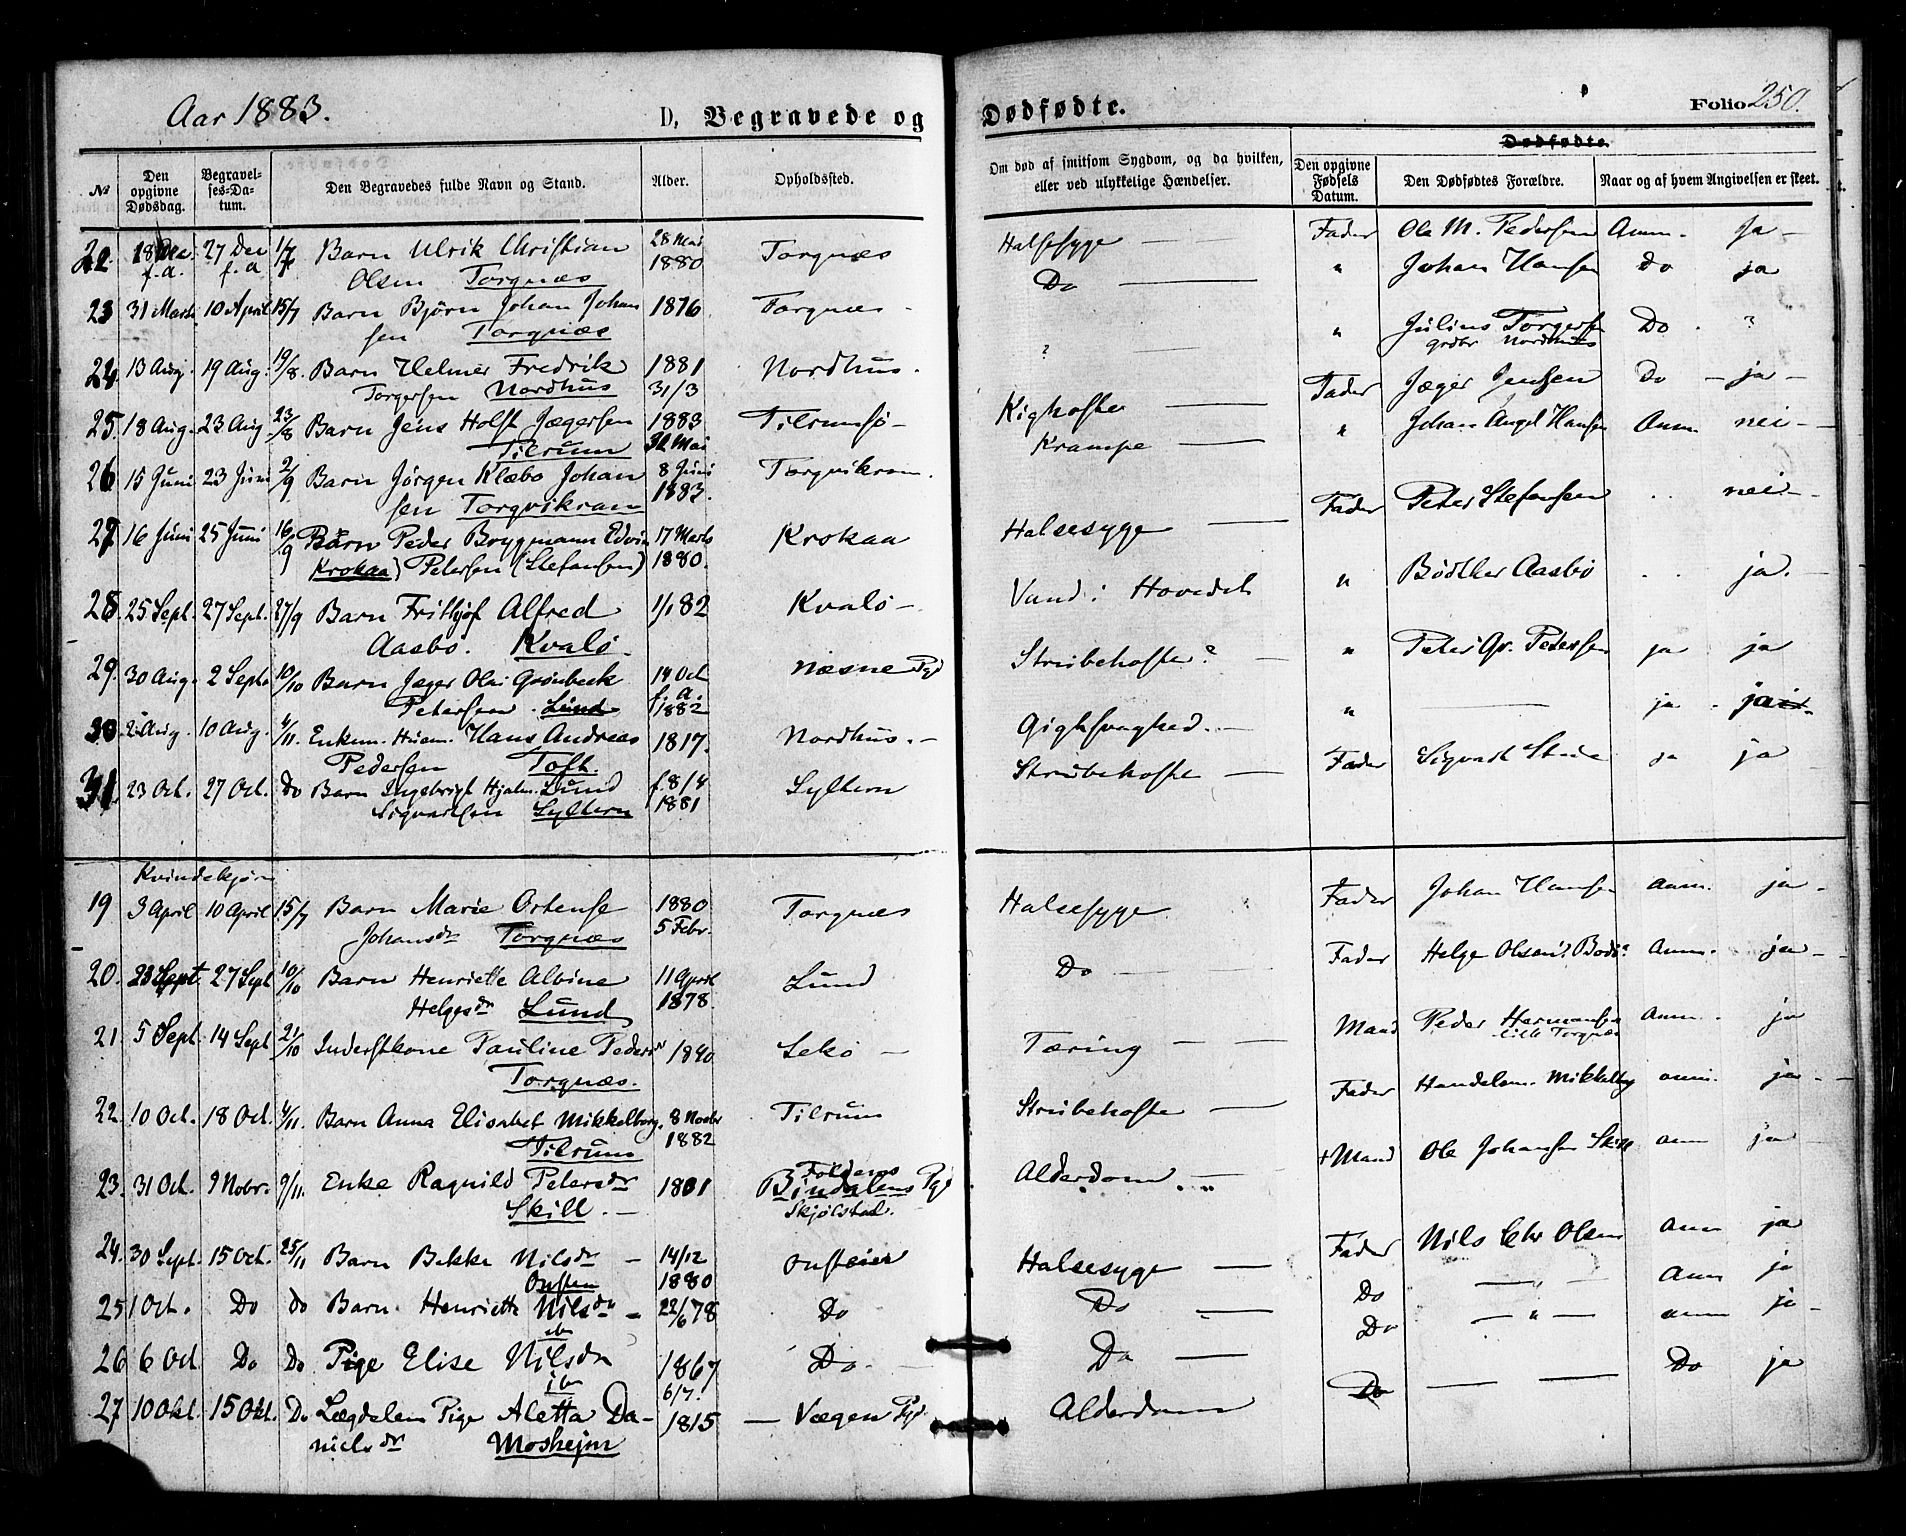 Aar 1883.
D, Begravede og
Dødfødte.
Folio 250.
№
Den opgivne Dødsdag.
Begravelses-Datum.
Den Begravedes fulde Navn og Stand.
Alder.
Opholdssted.
Om død af smitsom Sygdom, og da hvilken, eller ved ulykkelige Hændelser.
Dødfødte.
Den opgivne Fødsels Datum.
Den Dødfødtes Forældre.
Naar og af hvem Angivelsen er skeet.
22. 18 Dec 27 Dec 1/7 Barn Ulrik Christian 28 Mai Torgnæs Halsesyge — Fader Ole M. Pedersen Anm. Ja —
f.a. f.a Olsen Torgnæs 1880
23 31 Marts 10 April 15/7 Barn Bjørn Johan Johan 1876 Torgnæs - Do — " Johan Hansen Do ja
sen Torgnæs
24. 13 Aug. 19 Aug. 19/8. Barn Helmer Fredrik 1881 Nordhus. ? " Julius Torgersen Do . ?
Torgersen Nordhus 31/3 grdbr Nordhus
25. 18 Aug. 23 Aug. 23/8 Barn Jens Holst Jægersen 1883 Tilrumsø - Kighoste — Fader Jæger Jensen Do — ja —
Tilrum Mai
26 15 Juni 23 Juni 2/9 Barn Jørgen Klæbo Johan 8 Juni Torgvikran. Krampe — " Johan Angel Hansen Anm nei —
sen Torgvikran 1883.
27 16 Juni 25 Juni 16/9 Barn Peder Brygmann Edvin 17 Marts Krokaa Halsesyge — Fader Peter Stefansen . . nei —
Krokaa) Petersen (Stefansen) 1880.
28. 25 Sept. 27 Sept. 27/9 Barn Frithjof Alfred 1/1 82 Kvalø — Vand i Hovedet " Bødtker Aasbø . . ja. —
Aasbø. Kvalø.
29. 30 Aug. 2 Sept. 10/10 Barn Jæger Olai Grønbeck 14 Oct Næsne Pgd Strubehoste? — " Peter Gr. Petersen ja ja
Petersen. Lund f. a. 1882
30 2 Aug. 10 Aug. 4/11. Enkem. Husm. Hans Andreas 1817. Nordhus. — Gigtsvaghed. — " — ja .
Pedersen Toft.
31. 23 Oct. 27 Oct. do Barn Ingebrigt Hjalm. Lund f. 8/4 Syltern Strubehoste — Fader Sigvart ja ja —
Sigvartsen Syltern 1881
Kvindekjøn
19 3 April 10 April 15/7 Barn Marie Ortense 1880 Torgnæs Halsesyge Fader Johan Hansen anm. ja -
Johansdr Torgnæs 5 Febr.
20. 23 Sept 27 Sept 10/10 Barn Henriette Albine 11 April Lund Do — Fader Helge Olsen Anm. ja —
Helgesdr Lund 1878
21. 5 Sept. 14 Sept 21/10 Inderstkone Pauline Pedersdr 1840 Sekø — Tæring — — Mand Peder Hermansen Anm. . ja
Torgnæs. Lille Torgnæs
22. 10 Oct. 18 Oct. 4/11. Barn Anna Elisabet Mikkelborg. 8 Novbr Tilrum Strubehoste — Fader Handelsm. Mikkelborg anm. ja - -
Tilrum 1882
23. 31 Oct. 9 Nobr. 9/11. Enke Ragnild Petersdr 1801 Foldens Alderdom — † Mand Ole Johansen Skill anm ja -
Skill. — Bindalens Pgd
Skjølstad.
24. 30 Sept. 15 Oct. 25/11 Barn Bekke Nilsdr — 14/12 Onsteier Halsesyge — Fader Nils Chr Olsen Anm ja
Onsten 1880
25 1 Oct. Do do Barn. Henriette Nilsdr — 22/6 78 Do Do — Do — " — Anm ja
ibn
26 6 Oct. Do Do Pige Elise Nilsdr 1867 Do - Da — Do — " — anm ja -
ibn 6/7.
27 10 Okt. 15 Okt. Do Lægdslem Pige Aletta Da- 1815 — Vægen Pgd. Alderdom Do — — Do ja
nielsdr Mosheim